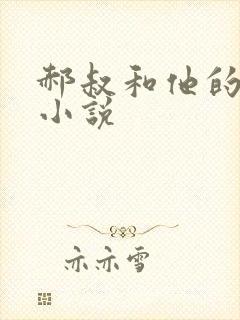 郝叔和他的
小说
亦亦雪